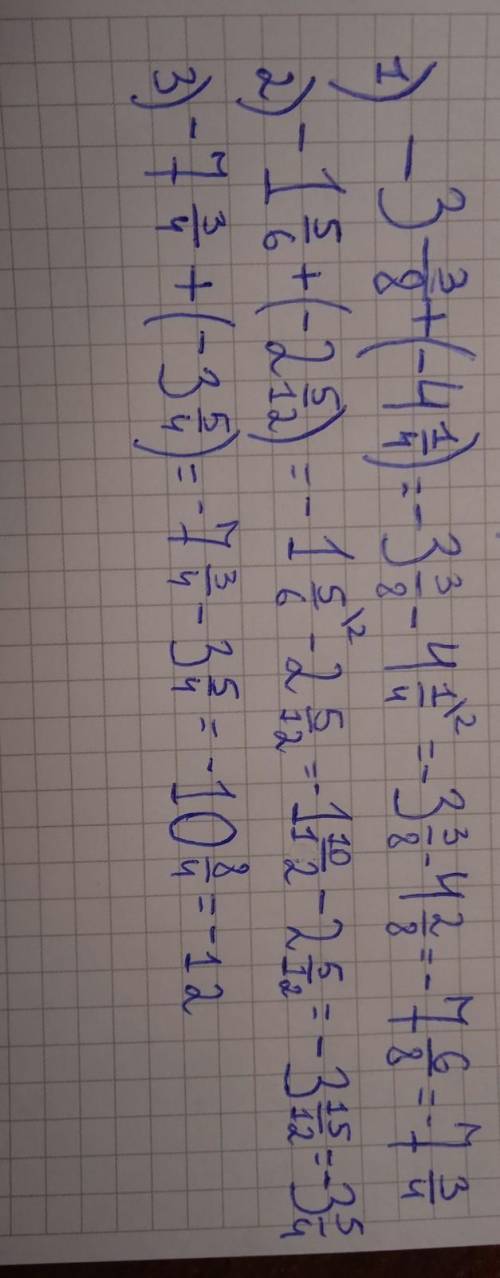 1) - 3 3/8 + (- 4 1/4) = - 3 3/8 - 4 1/4 \2 = - 3 3/8 - 4 2/8 = - 7 6/8 = - 7 3/4
2) - 1 5/6 + (- 2 5/12) = - 1 5/6 \2 - 2 5/12 = - 1 10/12 - 2 5/12 = - 3 15/12 = - 3 5/4
3) - 7 3/4 + (- 3 5/4) = - 7 3/4 - 3 5/4 = - 10 8/4 = - 12